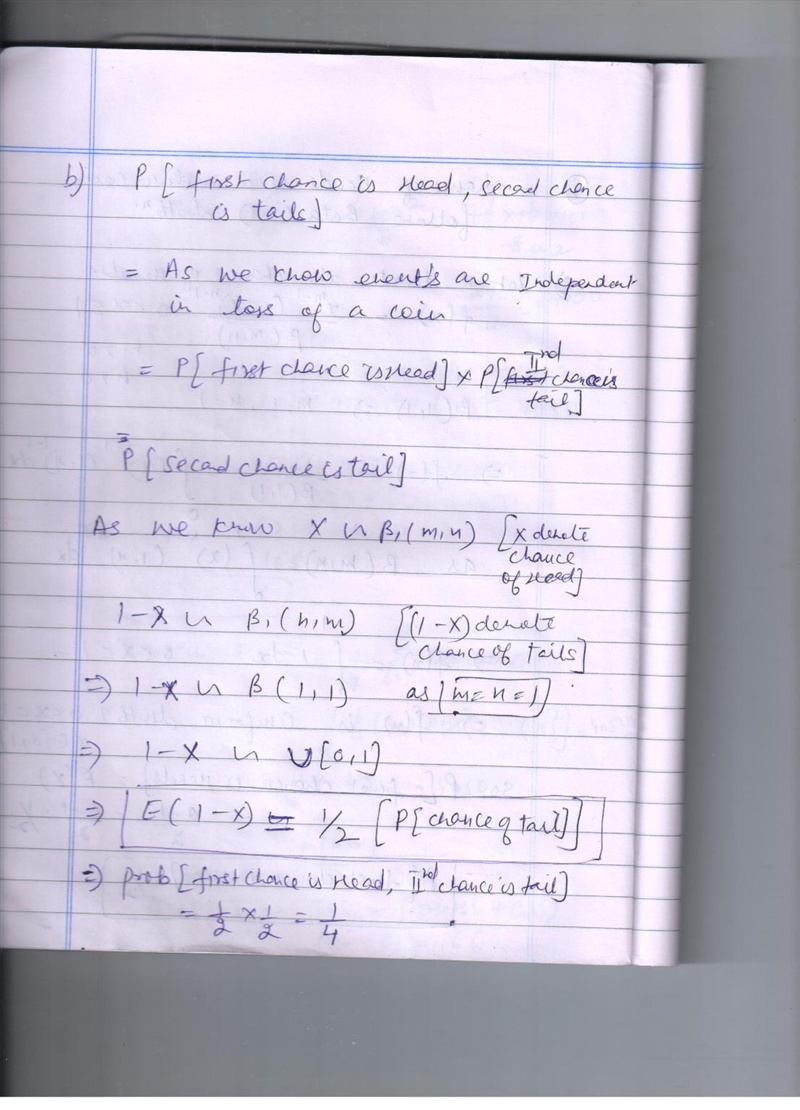 b) P [ first chance is Head, secad chance
is tails]
= As we know event's are Independent
in toss of a coin
= P[ first chance is Head] x P[ IInd chance is
tail]
= P [secad chance is tail]
As we know X ~ β₁(m,n) [X denote
chance
of Head]
1-X ~ β₁(n,m) [(1-X) denote
chance of Tails]
⇒ 1-X ~ β(1,1) as [m=n=1]
⇒ 1-X ~ U[0,1]
⇒ [E(1-X) = 1/2 [P[chance of tail]]
⇒ prob [first chance is Head, IInd chance is tail]
= 1/2 x 1/2 = 1/4